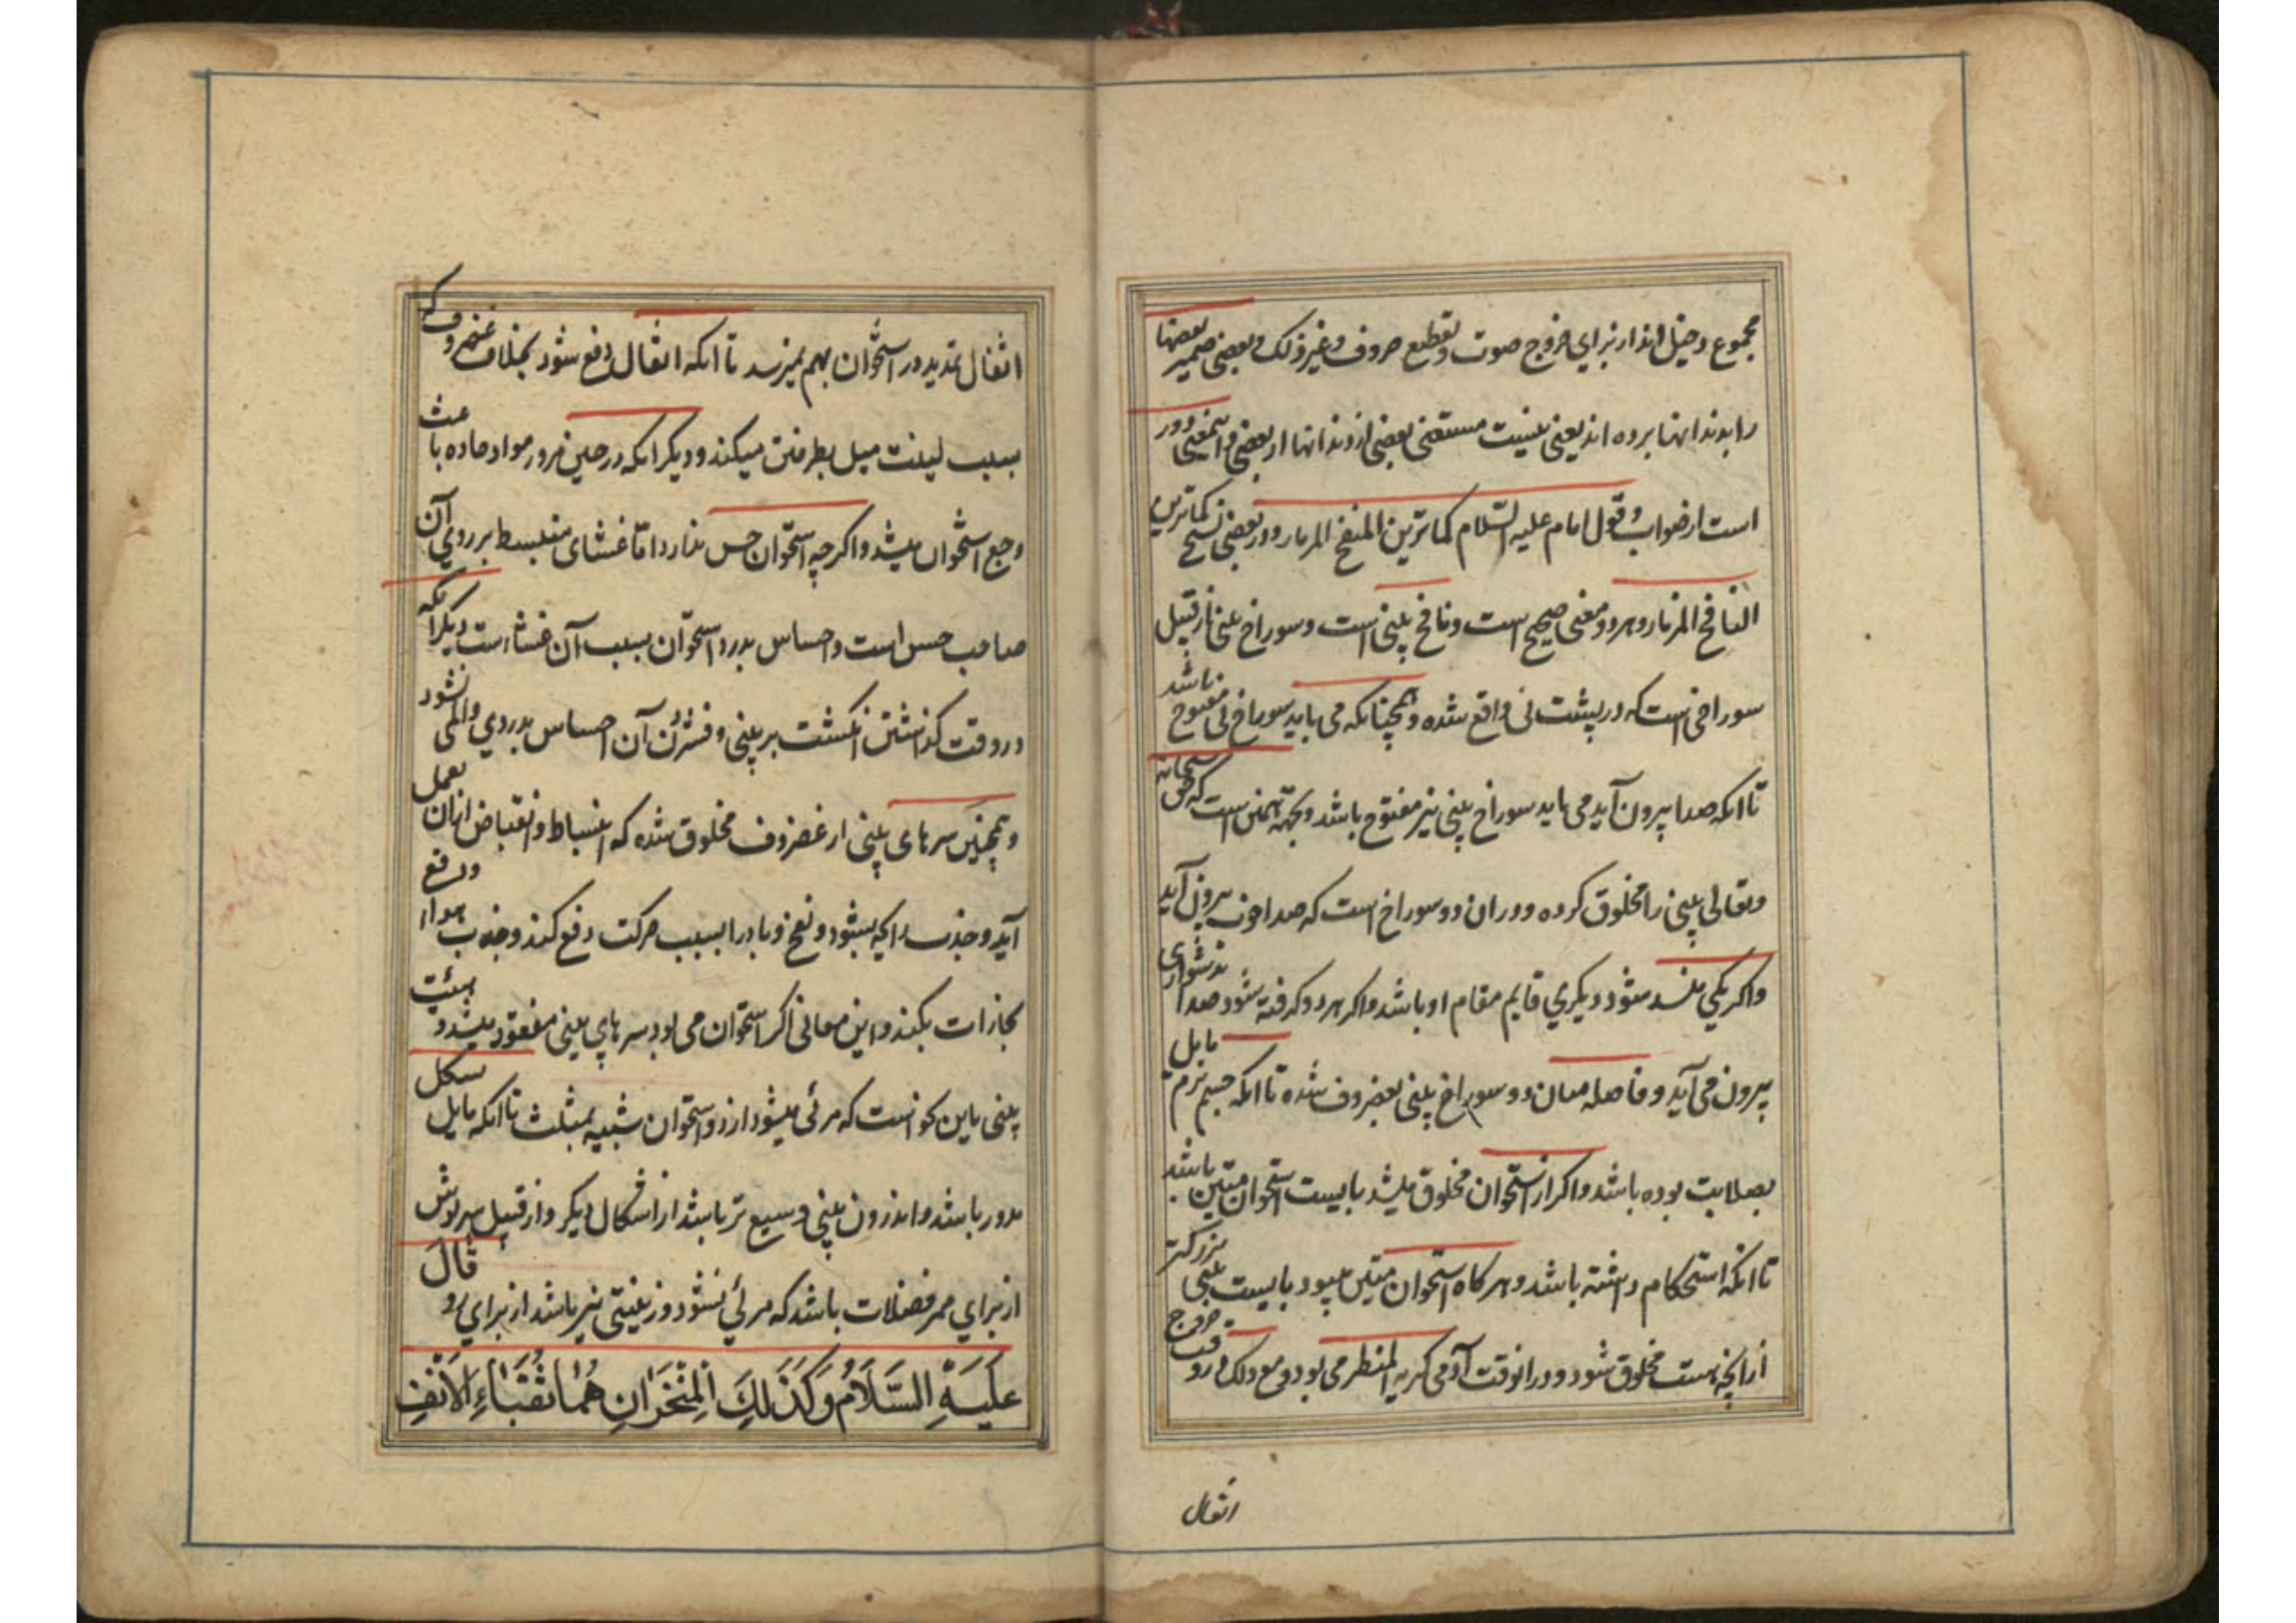 مجموع دخیل اند از برای خروج صوت و تقطیع حروف و غیر ذلک و بعضی ضمیر بعضها
را بدندانها برده اند یعنی نیست مستغنی بعضی از دندانها از بعضی و اینمعنی دور
است از صواب و قول امام علیه السّلام کما ترین المنفخ المزمار و در بعضی نسخ کما ترین
النافخ المزمار و هر دو معنی صحیح است و نافخ بینی است و سوراخ بینی از قبیل
سوراخی است که در پشت نی واقع شده و همچنانکه می باید سوراخ نی مفتوح باشد
تا انکه صدا بیرون آید می باید سوراخ بینی نیز مفتوح باشد و بجهة همین است که حق سبحانه
و تعالی بینی را مخلوق کرده و در ان دو سوراخ است که صدا خوب بیرون آید
و اگر یکی منسد شود دیگری قایم مقام او باشد و اگر هر دو گرفته شود صدا بدشواری
بیرون می آید و فاصله میان دو سوراخ بینی بغضروف شده تا انکه جسم نرم مایل
بصلابت بوده باشد و اگر از استخوان مخلوق میشد بایست استخوان متین باشد
تا انکه استحکام داشته باشد و هر گاه استخوان متین میبود بایست بینی بزرگتر
از انچه هست مخلوق شود و در انوقت آدمی کریه المنظر می بود و مع ذلک در وقت خروج
اثقال
اثقال تمدید در استخوان بهم میرسد تا انکه اثقال دفع شود بخلاف غضروف که
بسبب لینت میل بطرفین میکند و دیگر انکه در حین مرور مواد حاده باعث
وجع استخوان میشد و اگر چه استخوان حس ندارد امّا غشای منبسط بر روی آن
صاحب حس است و احساس بدرد استخوان بسبب آن غشا است دیگر انکه
در وقت گذاشتن انگشت بر بینی و فشردن آن احساس بدردی و المی نشود
و همچنین سرهای بینی از غضروف مخلوق شده که انبساط و انقباض از ان بعمل
آید و جذب رایحه بشود و نفخ و باد را بسبب حرکت دفع کند و جذب هوا و دفع
بخارات بکند و این معانی اگر استخوان می بود سرهای بینی مفقود میشد و هیئت
بینی باین نحو است که مرئی میشود از دو استخوان شبیه بمثلث تا انکه مایل بشکل
مدور باشد و اندرون بینی وسیع تر باشد از اشکال دیگر و از قبیل سرپوش
از برای ممر فضلات باشد که مرئی نشود و زینتی نیز باشد از برای رو قَالَ
عَلَیْهِ السَّلَامُ وَکَذَلِکَ الْمِنْخَرَانِ هُمَا ثُقْبَتَا الْاَنْفِ